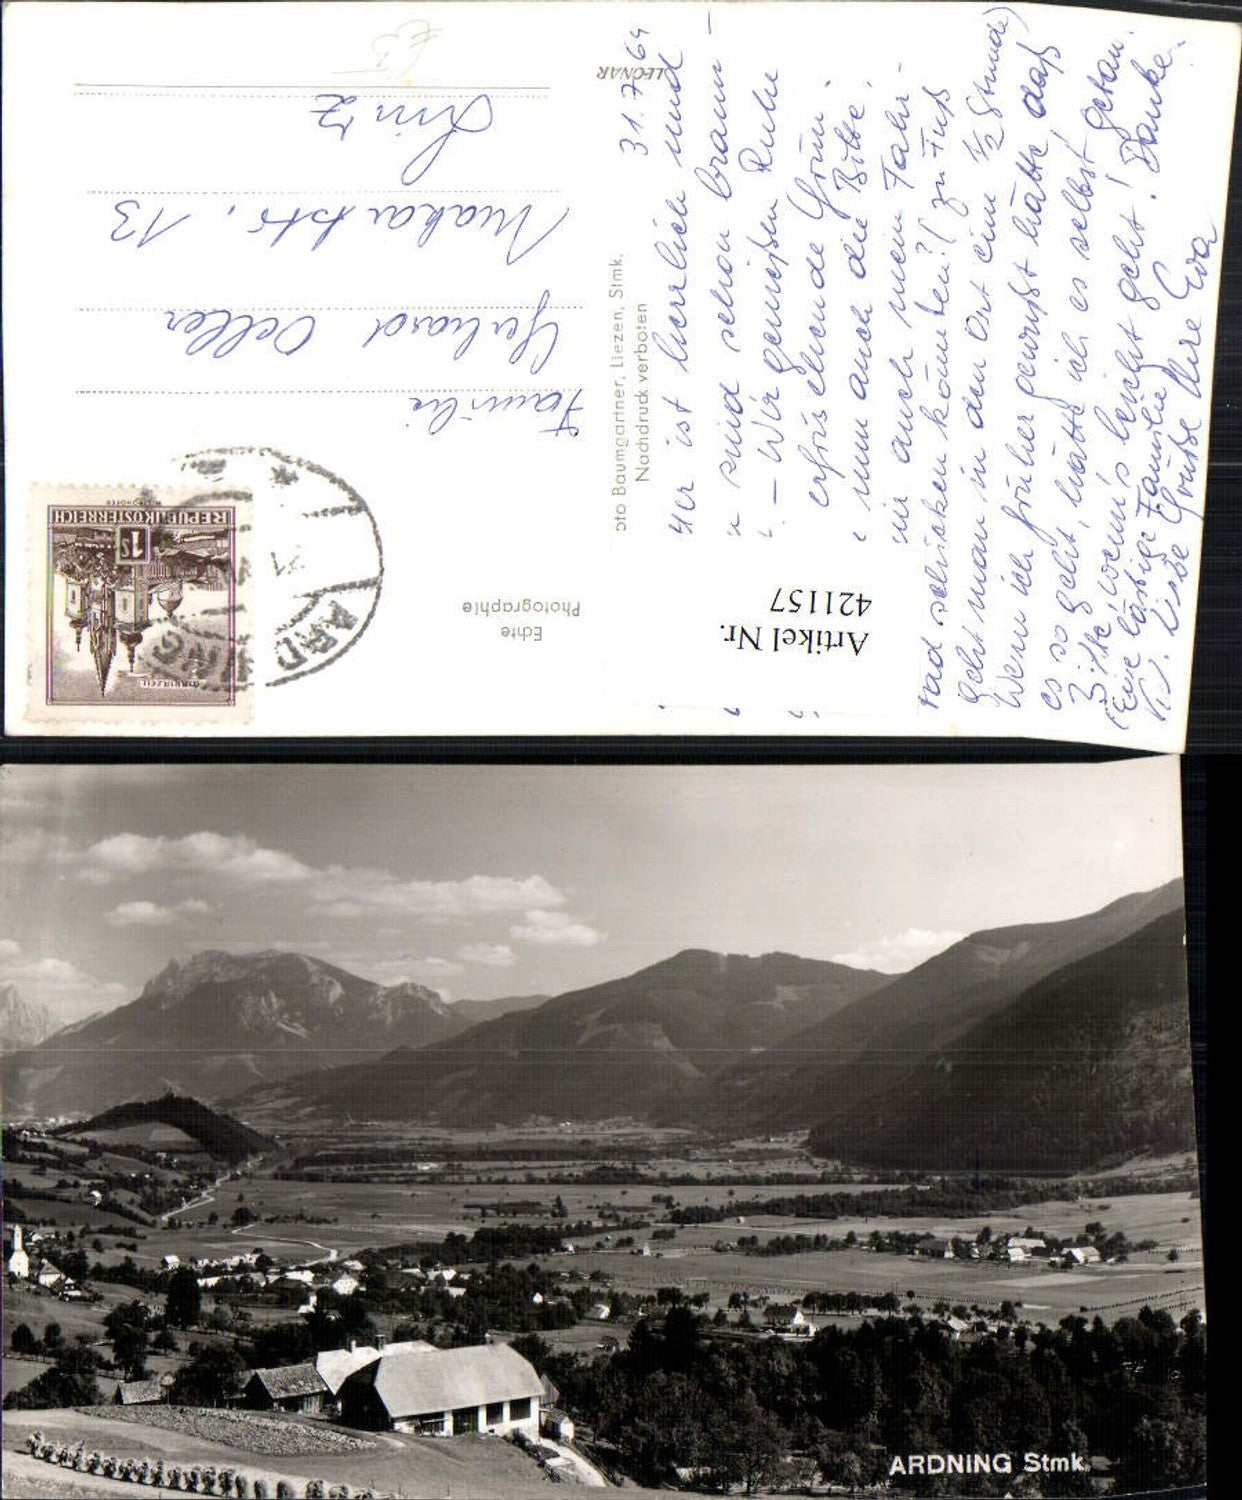 31.7.64
Hier ist herrlich und
sind schon braun
. – Wir genießen Ruhe
erfrischende Grün
nun auch die Bitte,
mir auch mein Fahr-
rad schicken könnten? (zu Fuß
geht man in den Ort eine 1/2 Stunde)
Wenn ich früher gewußt hätte, daß
es so geht, hätte ich es selbst getan.
Bitte, wenn's leicht geht! Danke.
(Eine lästige Familie)
Liebe Grüße Ihre Eva
Familie
Gerhard Oeller
Makartstr. 13
Linz
LEONAR
oto Baumgartner, Liezen, Stmk.
Nachdruck verboten
Echte
Photographie
Artikel Nr.
421157
REPUBLIK ÖSTERREICH
1 S
ARDNING
31
ARDNING Stmk.